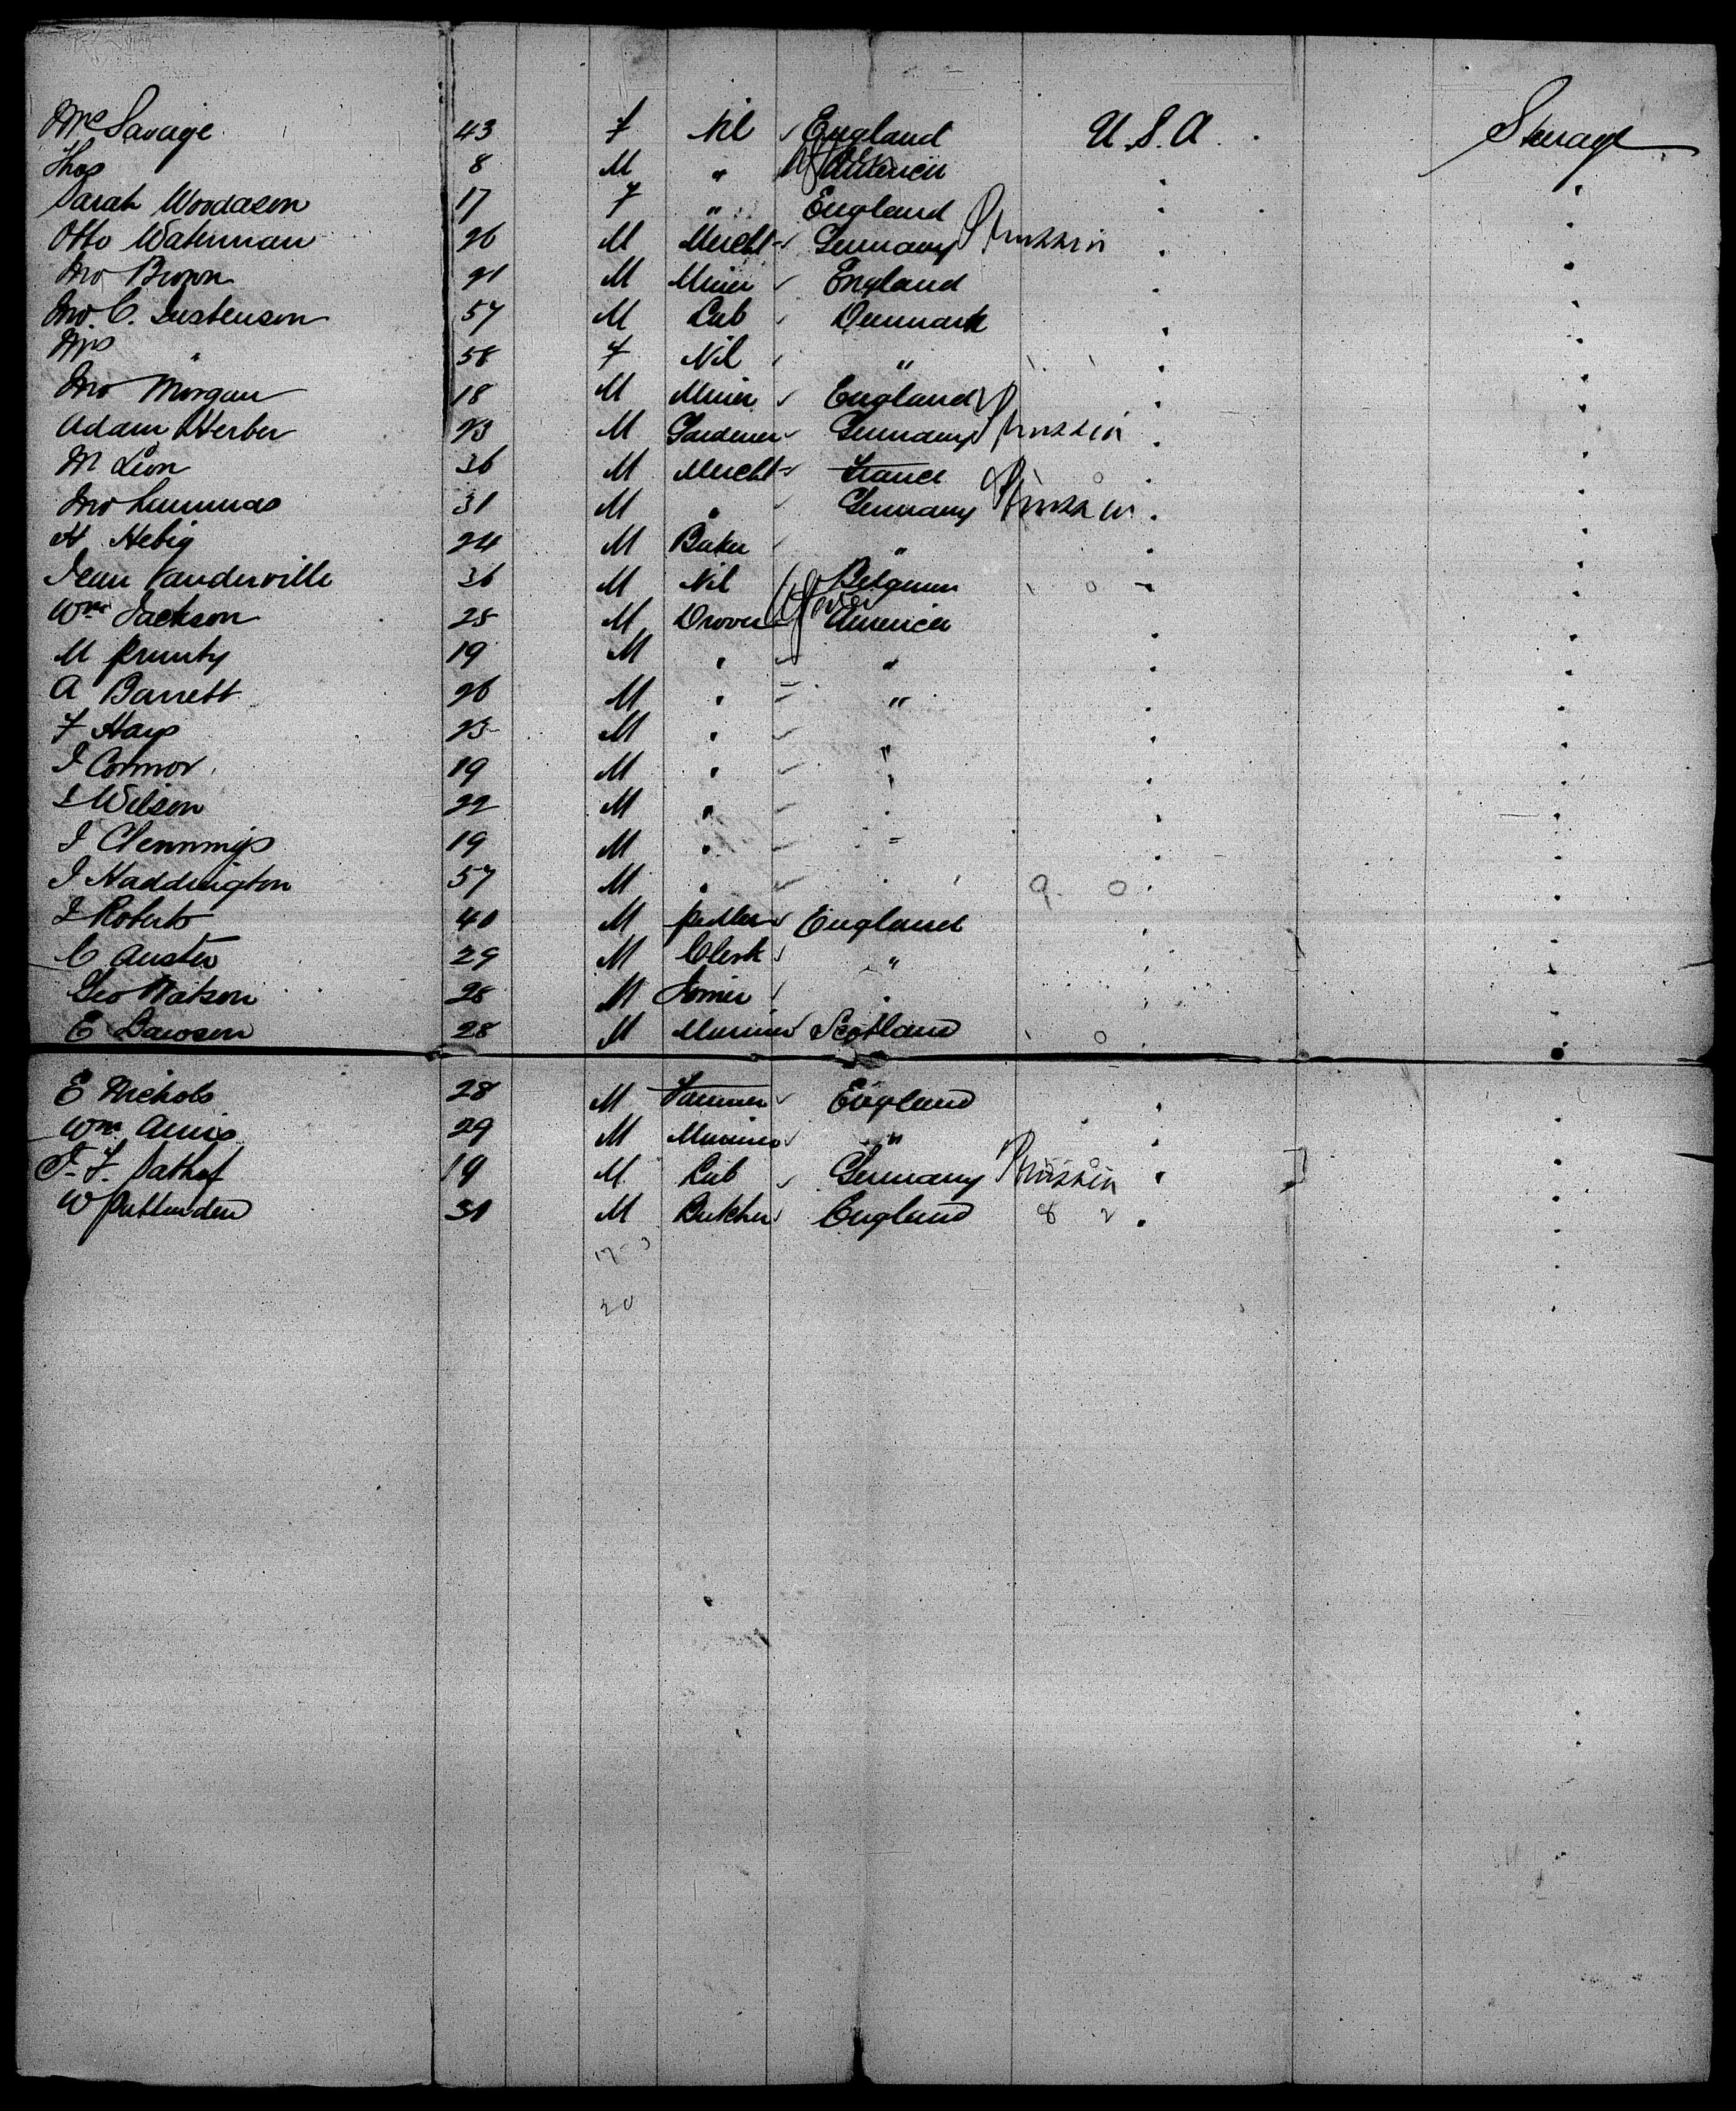 Mrs Savage 43 F Nil England U.S.A. Steerage
Thos 8 M " America
Sarah Woodason 17 F " England
Otto Waterman 26 M Mercht Germany Prussia
Jno Brown 21 M Miner England
Jno. C. Justensen 57 M Lab Denmark
Mrs " 58 F Nil "
Jno Morgan 18 M Miner England
Adam Werber 23 M Gardener Germany Prussia
M Leon 36 M Mercht France
Jno Lammas 31 M " Germany Prussia
H Hebig 24 M Baker "
Jean Vanderville 36 M Nil Belgium
Wm Jackson 25 M Drover America
M Prunty 19 M " "
A Barrett 26 M " "
F Hays 23 M " "
J Connor 19 M " "
Wilson 22 M " "
J Clennings 19 M " "
J Haddington 57 M " "
Roberts 40 M Pedler England
C Auster 29 M Clerk "
Geo Watson 28 M Joiner "
E Dawson 28 M Scotland
E Nichols 28 M Farmer England
Wm 29 M "
F. 19 M Lab Germany Prussia
W Puttenden 31 M Butcher England 8 2
17 3
20